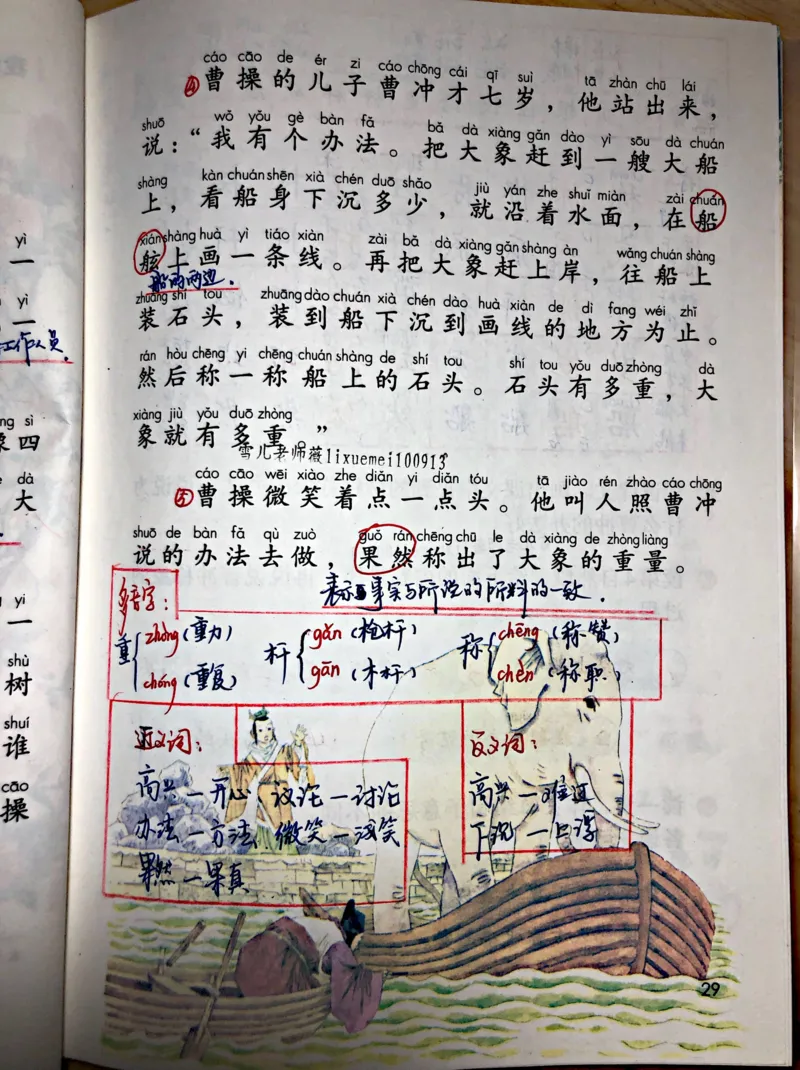 cáo cāo de ér zi cáo chōng cái qī suì tā zhàn chū lái
④曹操的儿子曹冲才七岁，他站出来，
shuō wǒ yǒu gè bàn fǎ bǎ dà xiàng gǎn dào yì sōu dà chuán
说：“我有个办法。把大象赶到一艘大船
shàng kàn chuán shēn xià chén duō shǎo jiù yán zhe shuǐ miàn zài chuán
上，看船身下沉多少，就沿着水面，在船
xián shàng huà yì tiáo xiàn zài bǎ dà xiàng gǎn shàng àn wǎng chuán shàng
舷上画一条线。再把大象赶上岸，往船上
船的两边.
zhuāng shí tou zhuāng dào chuán xià chén dào huà xiàn de dì fang wéi zhǐ
装石头，装到船下沉到画线的地方为止。
rán hòu chēng yi chēng chuán shàng de shí tou shí tou yǒu duō zhòng dà
然后称一称船上的石头。石头有多重，大
xiàng jiù yǒu duō zhòng
象就有多重。”
雪儿老师薇lixuemei100913
cáo cāo wēi xiào zhe diǎn yi diǎn tóu tā jiào rén zhào cáo chōng
⑤曹操微笑着点一点头。他叫人照曹冲
shuō de bàn fǎ qù zuò guǒ rán chēng chū le dà xiàng de zhòng liàng
说的办法去做，果然称出了大象的重量。
表示事实与所说的所料的一致.
多音字：
重 zhòng（重力） chóng（重复）
杆 gǎn（枪杆） gān（木杆）
称 chēng（称赞） chèn（称职）
近义词：
高兴—开心 议论—讨论
办法—方法 微笑—浅笑
果然—果真
反义词：
高兴—难过
下沉—上浮
29
yì
一
yì
一
工作人员.
ng sì
象四
dà
大
yi
一
shù
树
shuí
谁
cāo
操